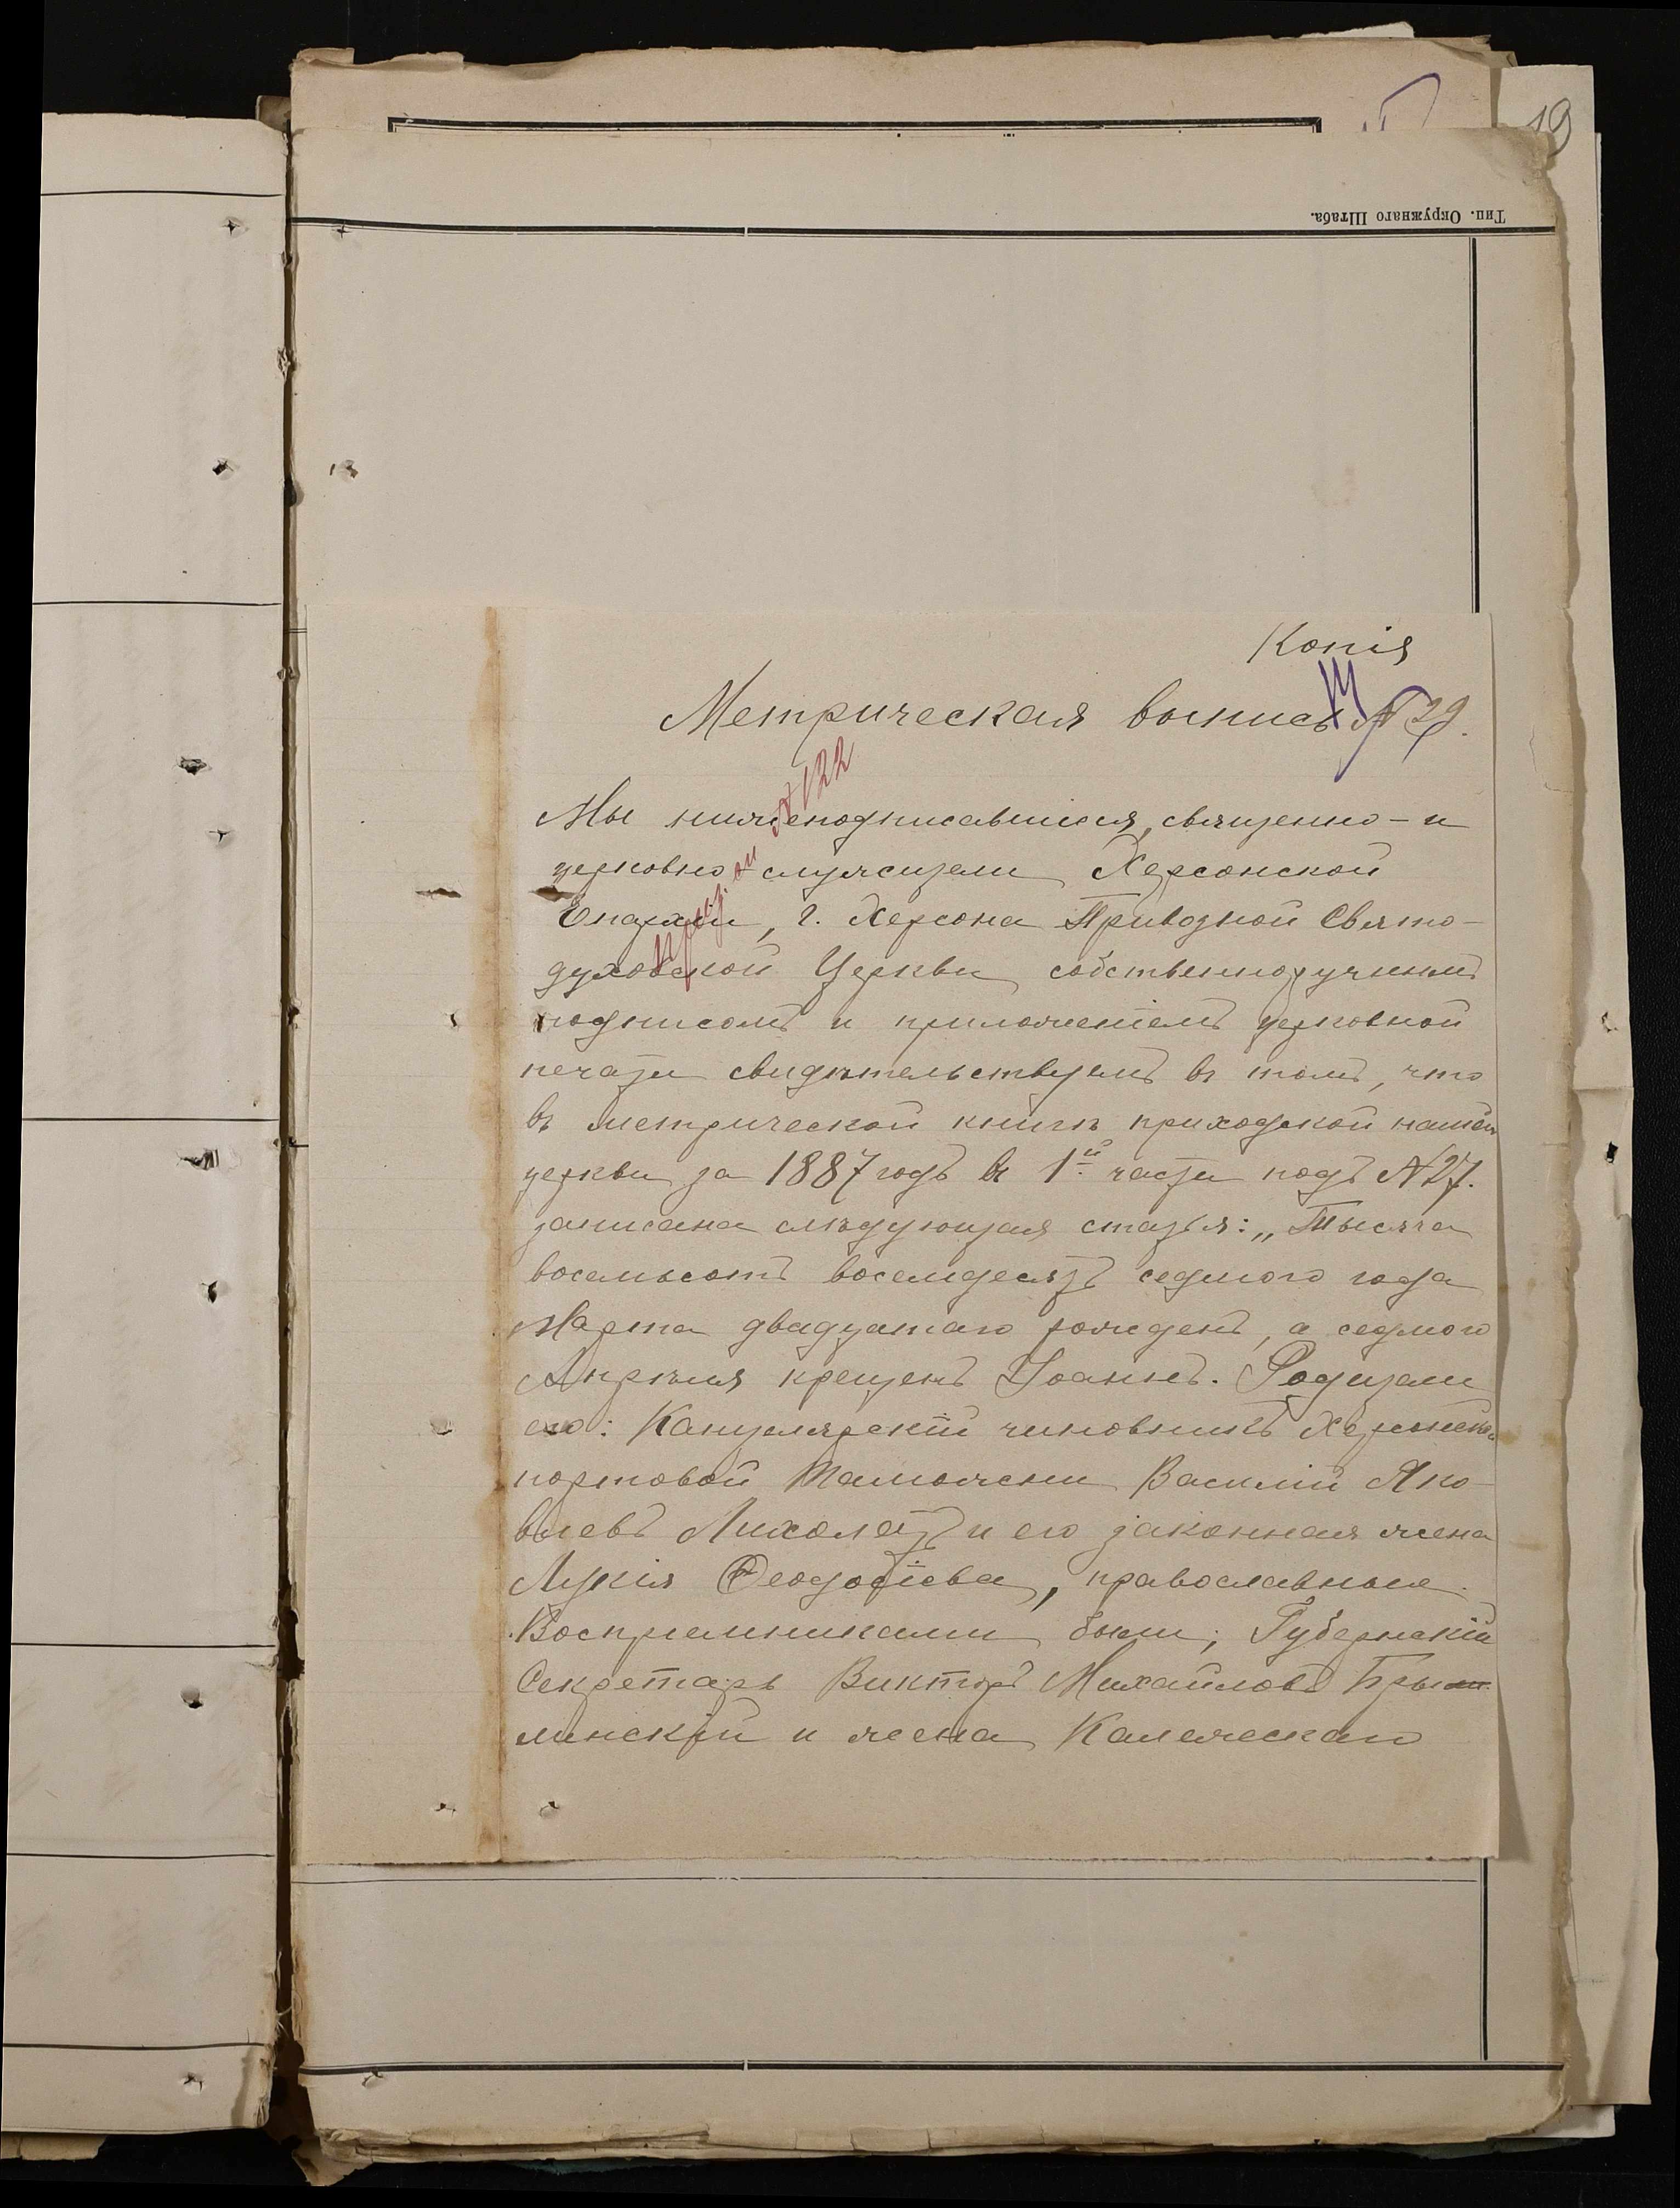 19
Тип. Окружнаго Штаба.
Копія
Метрическая выпись № 29.
№ 122
Мы нижеподписавшиеся, священно- и
церковно-служители Херсонской
Епархіи, г. Херсона Привозной Свято-
духовской Церкви собственноручнымъ
подписомъ и приложеніемъ церковной
печати свидѣтельствуемъ въ томъ, что
въ метрической книгѣ приходской нашей
церкви за 1887 годъ въ 1й части подъ № 27.
записана слѣдующая статья: „Тысяча
восемьсотъ восемдесятъ седмого года
Марта двадцатаго рожденъ, а седмого
Апрѣля крещенъ Іоаннъ. Родители
его: Канцелярскій чиновникъ Херсонской
портовой Таможени Василій Яко-
влевъ Лихолетъ и его законная жена
Лукія Ѳеодосіева, православные.
Восприемниками были; Губернскій
Секретарь Викторъ Михайловъ
и жена